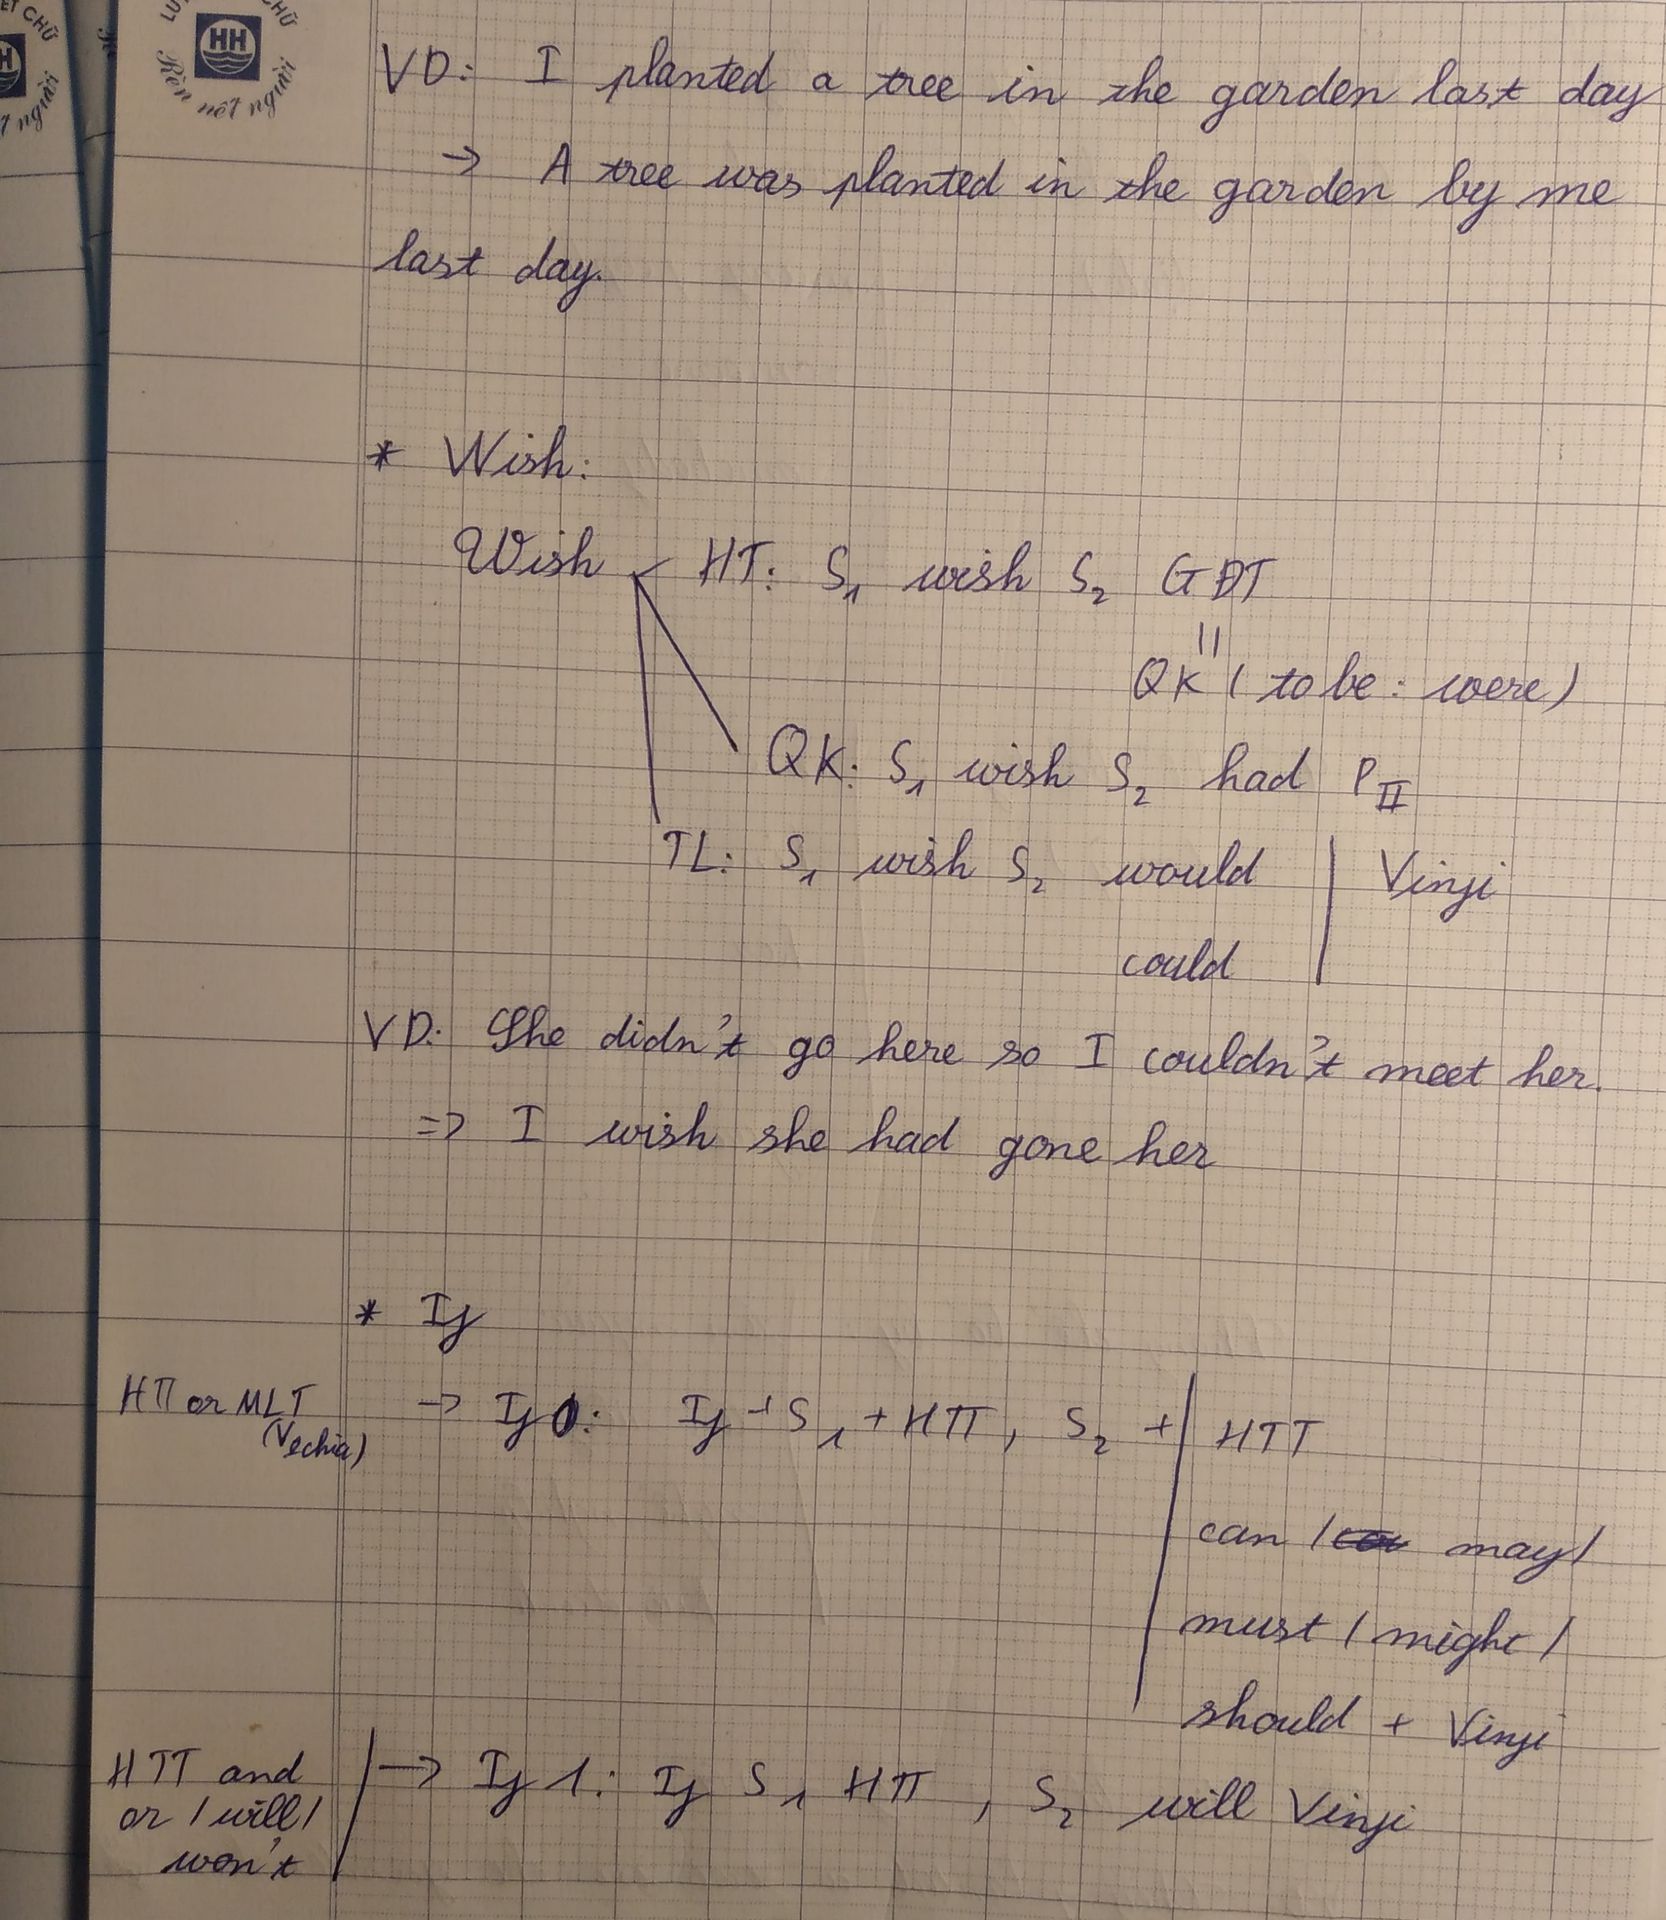 ẾT CHỮ
H
t người
LU
CHỮ
HH
Rèn nết người
VD: I planted a tree in the garden last day
-> A tree was planted in the garden by me
last day.
* Wish:
Wish < HT: S1 wish S2 GĐT
=
QK ( to be : were)
QK: S1 wish S2 had PII
TL: S1 wish S2 would | Vinf
could
VD: She didn't go here so I couldn't meet her.
=> I wish she had gone her
* If
HTT or MLT -> If 0: If + S1 + HTT, S2 + | HTT
(Vechia)
can / may /
must / might /
should + Vinf
HTT and | -> If 1: If S1 HTT , S2 will Vinf
or / will /
won't